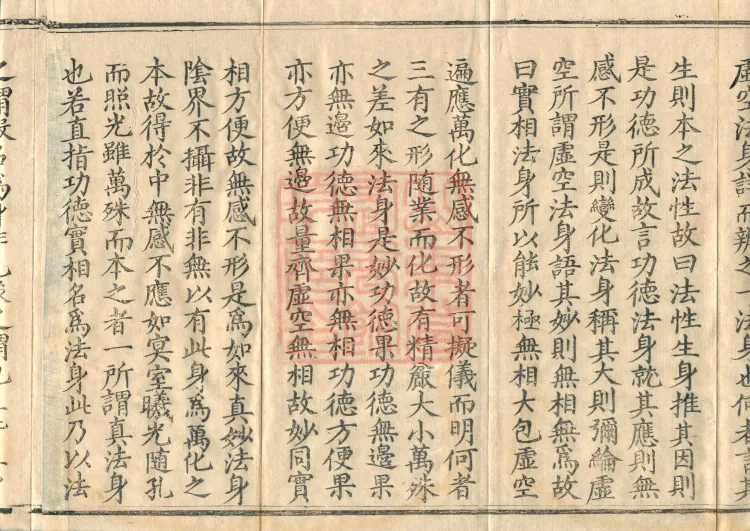 虛空法身詳而辨之一法身也何者言其
生則本之法性故曰法性生身推其因則
是功德所成故言功德法身就其應則無
感不形是則變化法身稱其大則彌綸虛
空所謂虛空法身語其妙則無相無為故
曰實相法身所以能妙極無相大包虛空
遍應萬化無感不形者可擬儀而明何者
三有之形隨業而化故有精麤大小萬殊
之差如來法身是妙功德果功德無邊果
亦無邊功德無相果亦無相功德方便果
亦方便無邊故量齊虛空無相故妙同實
相方便故無感不形是為如來真妙法身
陰界不攝非有非無以有此身為萬化之
本故得於中無感不應如冥室曦光隨孔
而照光雖萬殊而本之者一所謂真法身
也若直指功德實相名為法身此乃以法